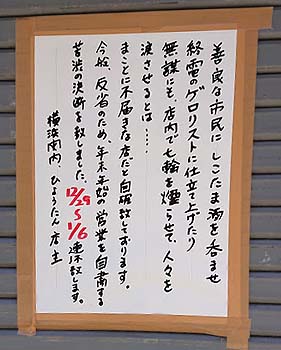 善良な市民にしこたま酒を呑ませ
終電のゲロリストに仕立て上げたり
無謀にも、店内で七輪を煙らせて、人々を
涙させるとは……
まことに不届きな店だと自確致しております。
今般、反省のため、年末年始の営業を自粛する
苦渋の決断を致しました。12/29〜1/6連休致します。
横浜関内 ひょうたん 店主